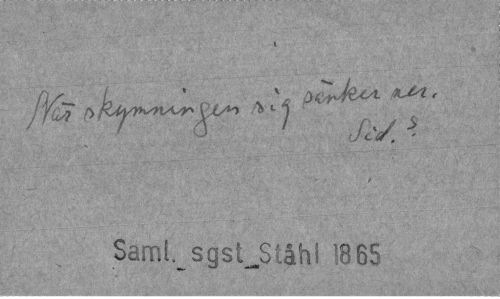 När skymningen sig sänker ner.
Sid.?
Saml._sgst_Ståhl 1865